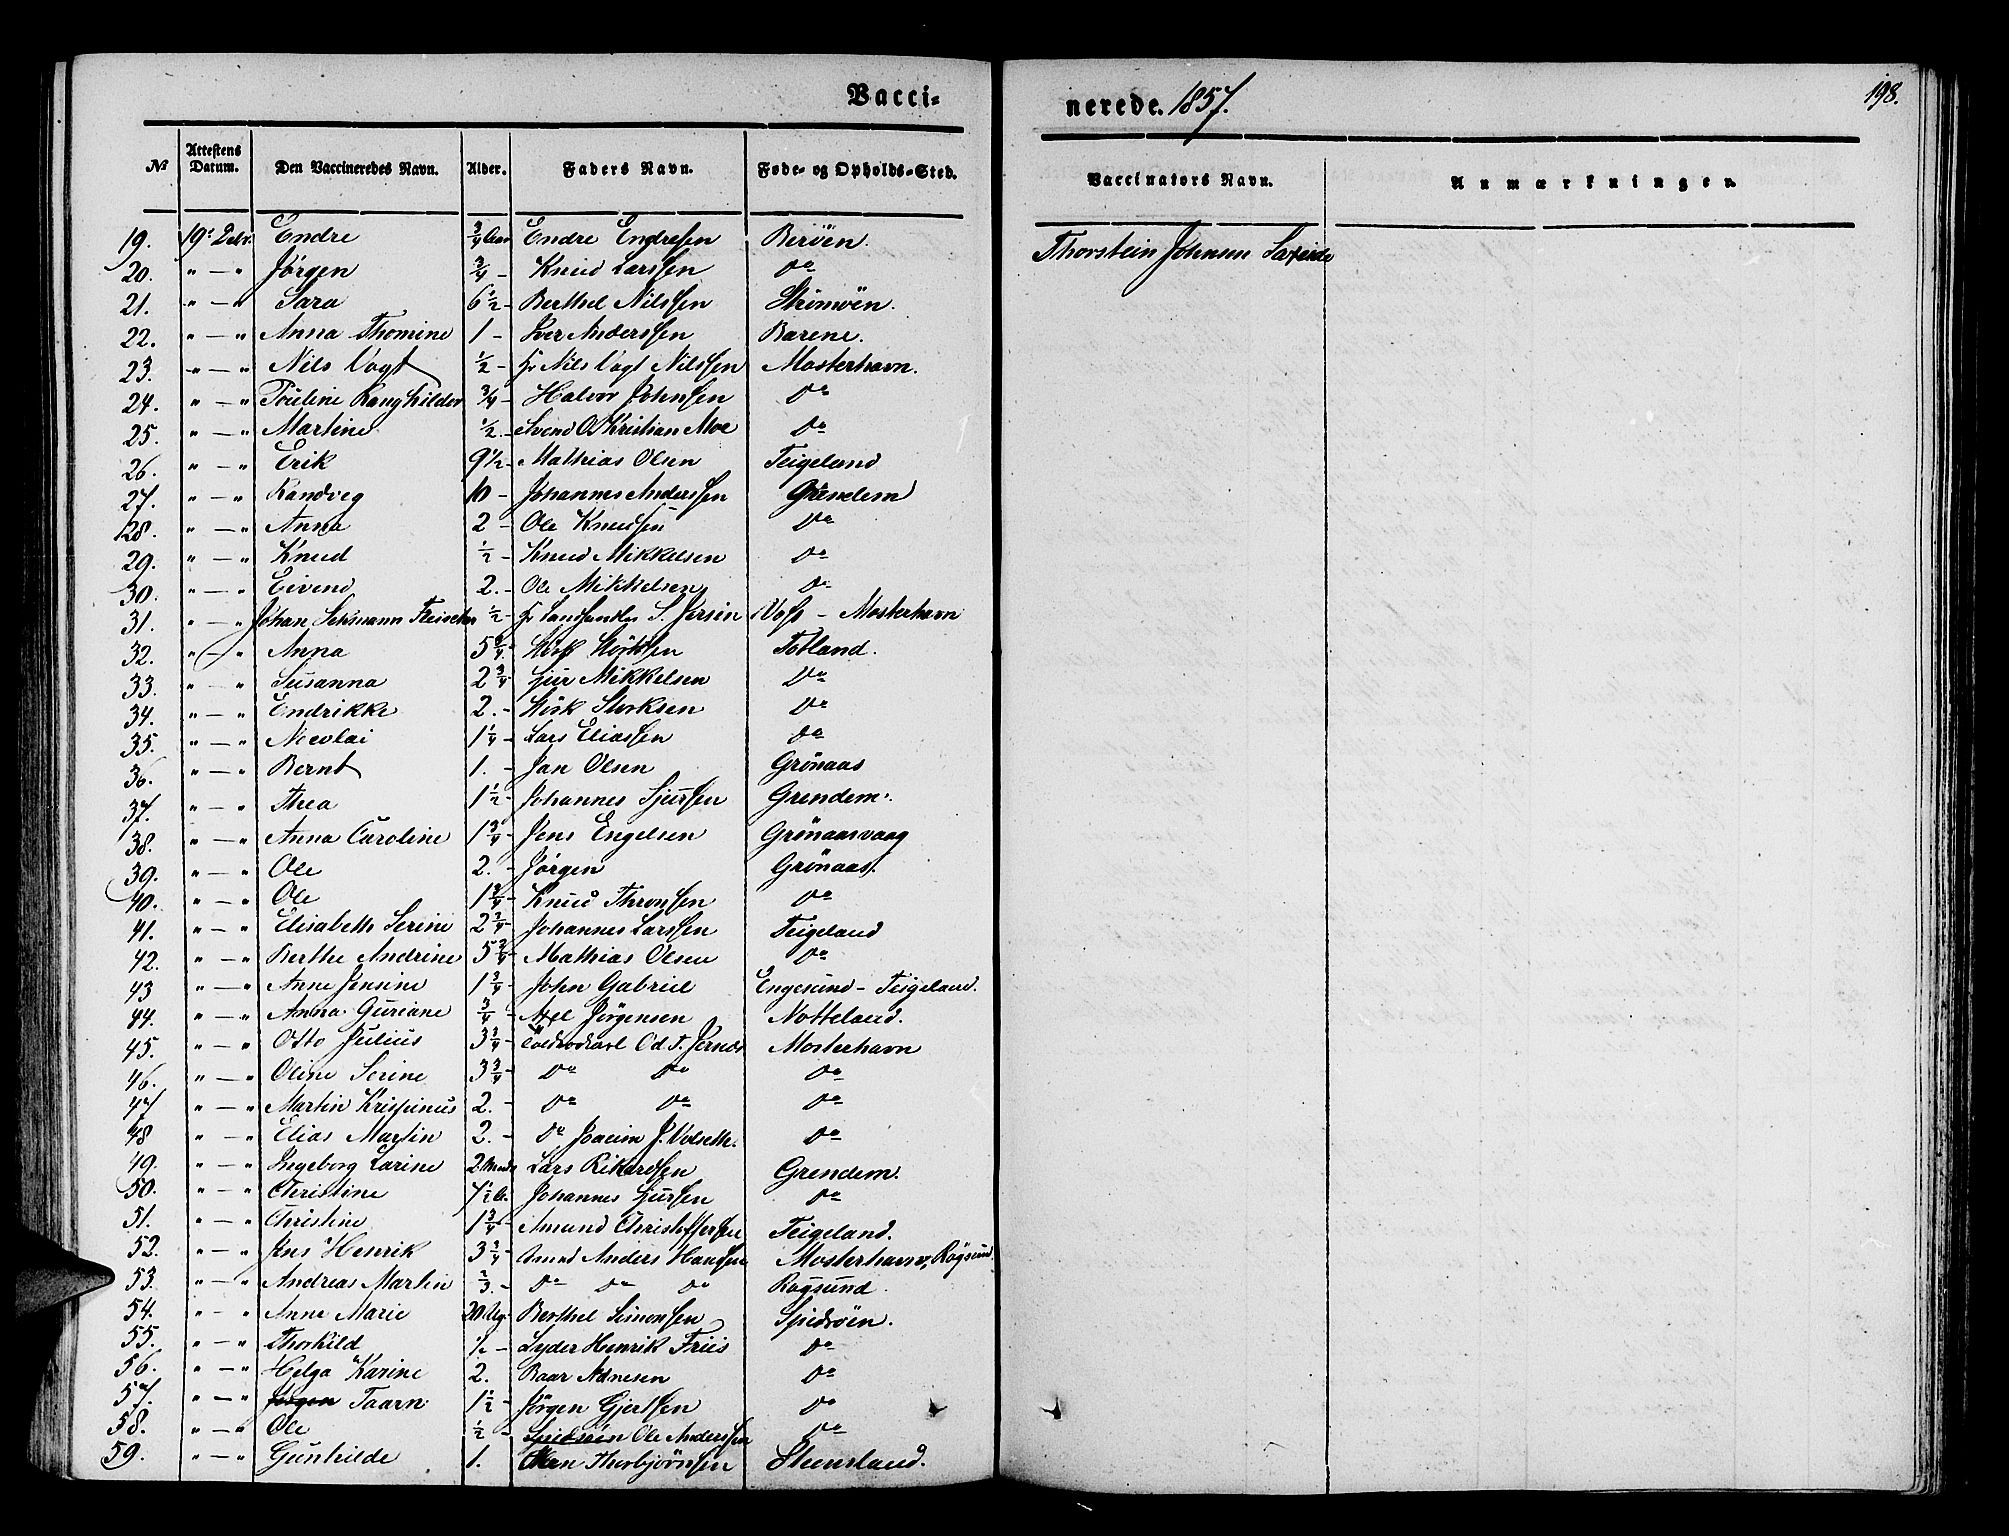 Vacci-
nerede. 1857.
198.
No Attestens Datum. Den Vaccineredes Navn. Alder. Faders Navn. Føde- og Opholds-Sted. Vaccinators Navn. Anmærkninger.
19. 19' Endre 3/4 Endre Endresen Beröen. Thorstein Johnsen
20. " — " Jørgen 3/4 - Knud Larssen Do
21. " — " Sara 6 1/2 - Berthel Nilssen
22. " — " Anna Thomine 1 - Iver Anderssen Barene.
23. " — " Nils Vogt 1/2 - Hr Nils Vogt Nilssen Mosterhavn.
24. " — " 3/4 - Halvor Johnsen Do
25. " — " Martine 1/2. - Svend O. Kristian Moe Do
26. " — " Erik 9 1/2 - Mathias Olsen Teigeland
27. " — " Randveg 10 - Johannes Anderssen Grendem
28. " — " Anna 2 - Ole Knudsen Do
29. " — " Knud 1/2 - Knud Mikkelsen Do
30. " — " Eivend 2. - Ole Mikkelsen Do
31. " — " Johan Fleischer 1/2 - Hr Landhandler S. Jersin Voss - Mosterhavn
32. " — " Anna 5 3/4 Totland.
33. " — " Susanna 2 3/4 Sjur Mikkelsen Do
34. " — " Endrikke 2. - Störk Storksen Do
35. " — " Nicolai 1 1/4 - Lars Eliassen Do
36. " — " Bernt 1. - Jan Olsen Grönaas
37. " — " Thea 1 1/2 - Johannes Sjurssen Grendem.
38. " — " Anna Caroline 1 3/4 - Jens Engelsen Grönaasvaag
39. " — " Ole 2. - Jørgen Grönaas.
40. " — " Ole 1 3/4 - Knud Thronsen Do
41. " — " Elisabeth Serine 2 3/4 - Johannes Larssen Teigeland
42. " — " Berthe Andrine 5 3/4 - Mathias Olsen Do
43 " — " Anne Jensine 1 3/4 - John Gabriel Engesund - Teigeland.
44. " — " Anna Guriane 3/4 - Axel Jörgensen Notteland.
45. " — " Otto Julius 3 3/4 Mosterhavn
46. " — " Oline Serine 3 3/4 - Do Do Do
47 " — " Martin Krispinus 2. - Do Do Do
48 " — " Elias Martin 2. - Do Joacim J. Valseth. Do
49. " — " Ingeborg Larine 2 Lars Rikardsen Grendem.
50. " — " Christine 4 1/2 Johannes Sjurssen Do
51. " — " Christine 1 3/4 - Amund Christoffersen Teigeland.
52. " — " Jens Henrik 3 3/4 - Anders Hanssen Mosterhavn, Røgsund.
53. " — " Andreas Martin 2/3. - Do Do Do Røgsund.
54. " - " Anne Marie 20 Ug. Berthel Simonsen Spidsöen.
55. " — " Thorkild 1/2 - Lyder Henrik Friis Do
56. " — " Helga Karine 2. Baar Adnesen Do
57. " — " Jörgen Taarn 1 1/2 - Jörgen Gjertsen Do
58. " — " Ole 1/2 - Spidsöen Ole Anderssen Do
59. " — " Gunhilde 1. Thorbjörnsen